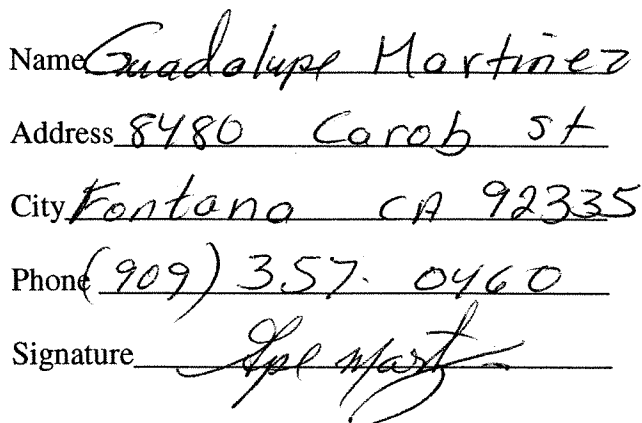 Name Guadalupe Martinez
Address 8480 Carob st
City Fontana CA 92335
Phone (909) 357-0460
Signature Gpe Mart